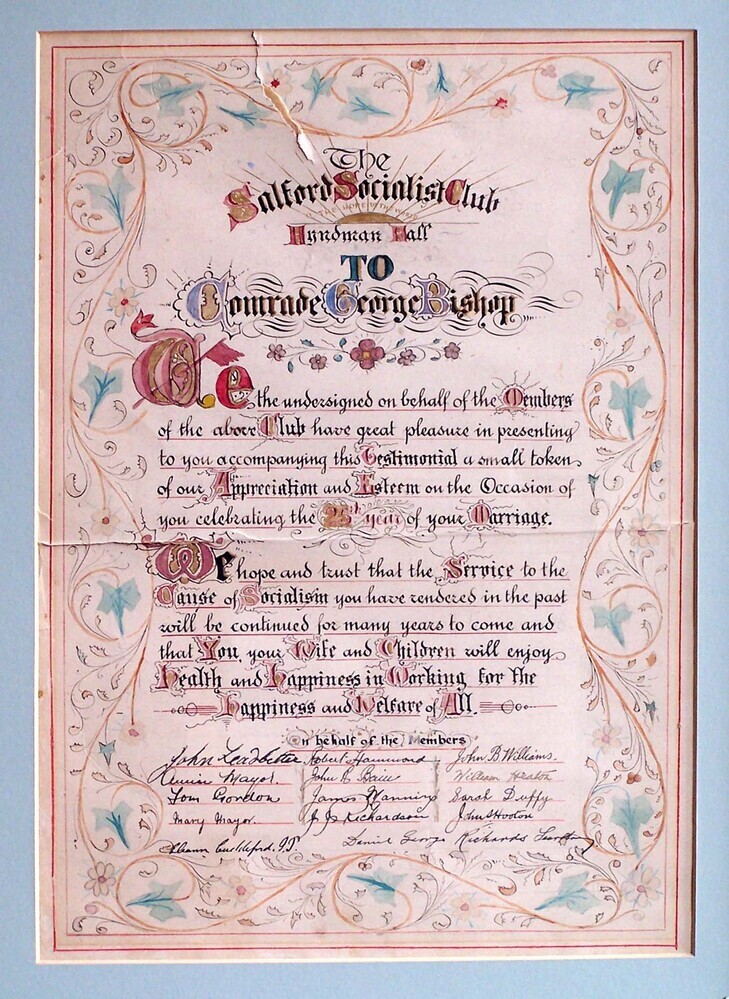 The
Salford Socialist Club
THE HOPE OF THE WORLD
Hyndman Hall
TO
Comrade George Bishop
We the undersigned on behalf of the Members
of the above Club have great pleasure in presenting
to you accompanying this Testimonial a small token
of our Appreciation and Esteem on the Occasion of
you celebrating the 25th year of your Marriage.
We hope and trust that the Service to the
Cause of Socialism you have rendered in the past
will be continued for many years to come and
that You, your Wife and Children will enjoy
Health and Happiness in Working for the
Happiness and Welfare of All.
On behalf of the Members
John Leadbetter Robert Hammond John B Williams.
Mayor. John William Heaton
Tom Gordon James Manning Sarah Duffy
Mary Mayor. J Js Richardson John S Hooton
J.P. Daniel George Richards